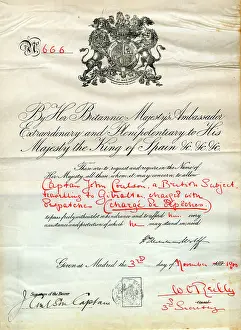 No. 666
By Her Britannic Majesty's Ambassador
Extraordinary and Plenipotentiary to His
Majesty the King of Spain &c &c &c
These are to request and require in the Name of
Her Majesty all those whom it may concern to allow
Captain John Coulson, a British Subject,
travelling to Gibraltar charged with
Despatches
to pass freely without let or hindrance and to afford him every
assistance and protection of which he may stand in need.
Given at Madrid the 3rd day of November
Signature of the Bearer
Captain
3rd Secretary